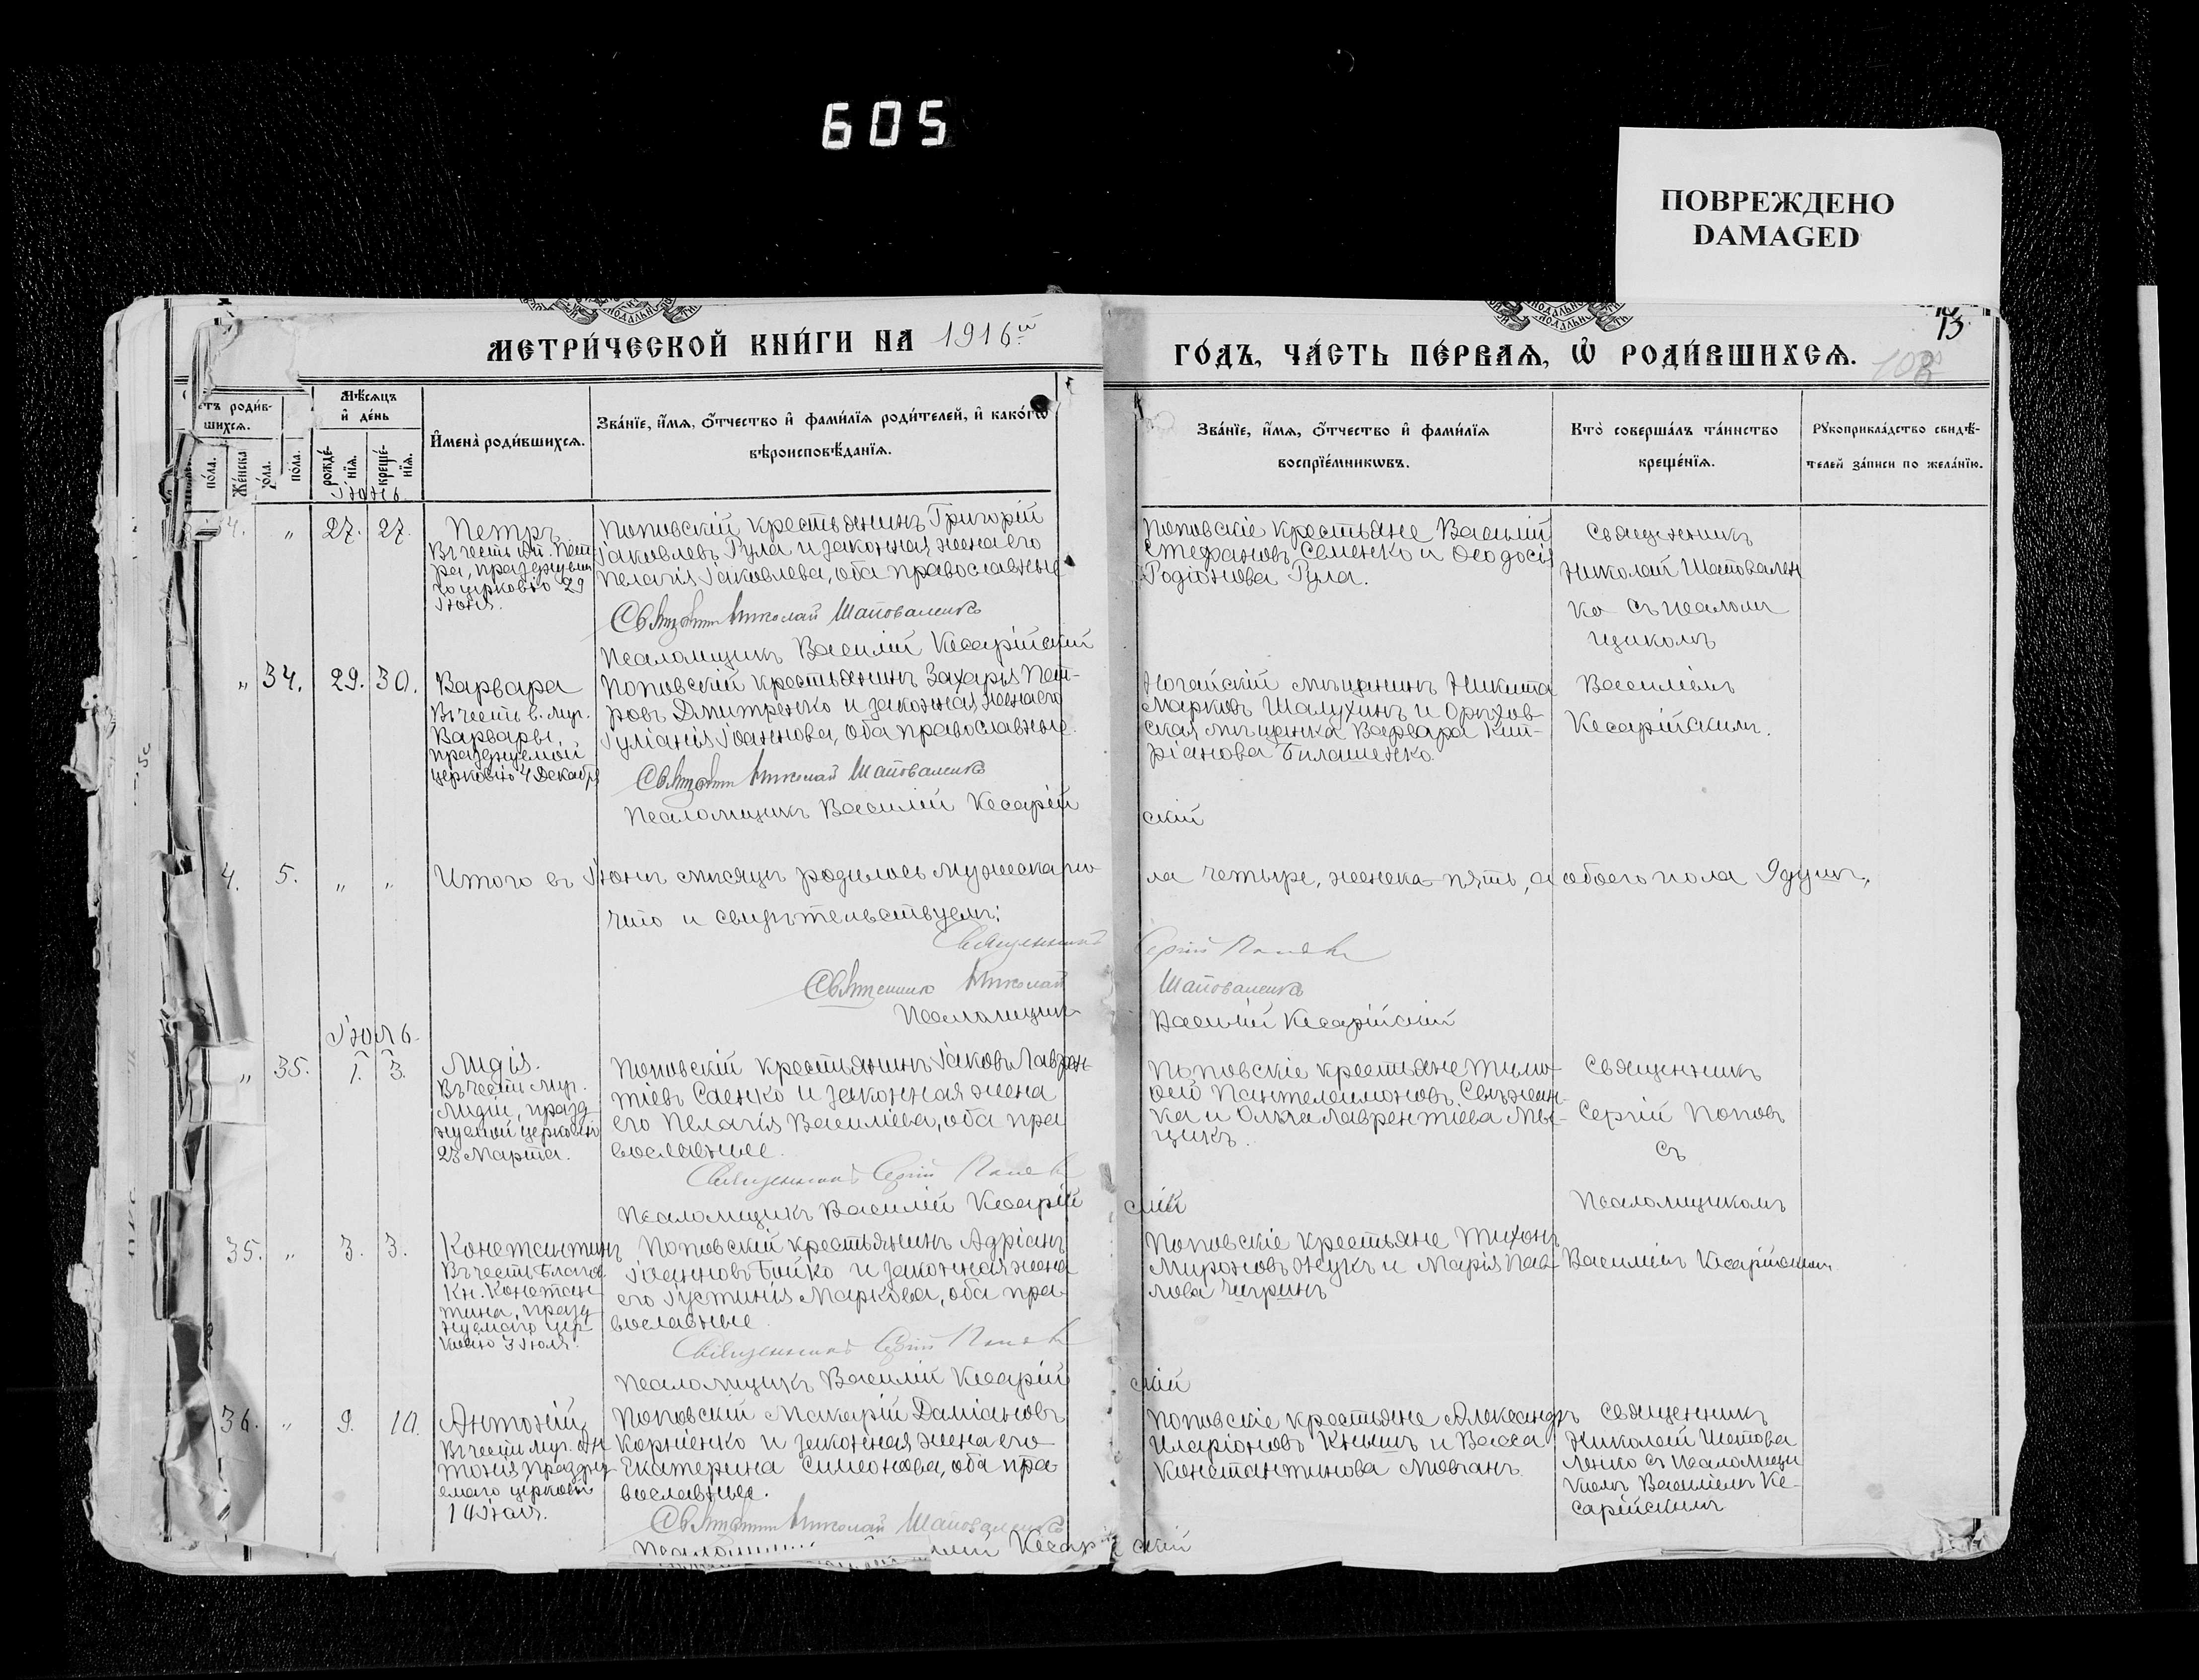 605
ПОВРЕЖДЕНО
DAMAGED
МЕТРИ́ЧЕСКОЙ КНИ́ГИ НА 1916й
ГО́ДЪ, ЧА́СТЬ ПЕ́РВАѦ, Ѡ РОДИ́ВШИХСѦ.
13
стъ роди́в-
шихсѧ.
Мѣ́сѧцъ
и҆ де́нь
по́ла.
Же́нска
по́ла.
рожде́-
нїѧ.
креще́-
нїѧ.
И҆мена̀ роди́вшихсѧ.
Зва́нїе, и҆́мѧ, ѻ҆́тчество и҆ фами́лїѧ роди́телей, и҆ како́гѡ
вѣроисповѣ́данїѧ.
Зва́нїе, и҆́мѧ, ѻ҆́тчество и҆ фами́лїѧ
воспрїе́мникѡвъ.
Кто̀ соверша́лъ та́инство
креще́нїѧ.
Рꙋкоприкла́дство свидѣ́-
телей за́писи по жела́нїю.
Іюнь
4. „ 27. 27.
Петръ
Въ честь ап. Пет
ра, празднуем
го церковію 29
Іюня.
Поповскій крестьянинъ Григорій
Іаковлевъ Гула и законная жена его
Пелагія Іаковлева, оба православные
Священник Николай Шаповаленко
Псаломщикъ Василій Кесарійскій
Поповскіе крестьяне Василій
Стефановъ Семенко и Ѳеодосія
Родіонова Гула.
Священникъ
Николай Шаповален
ко съ псалом
щикомъ
„ 34. 29. 30.
Варвара
Въ честь в. муч.
Варвары,
празднуемой
церковію 4 Декабря
Поповскій крестьянинъ Захарья Пет-
ровъ Дмитренко и законная жена его
Іуліанія Іоаннова, оба православные.
Священник Николай Шаповаленко
Псаломщикъ Василій Кесарій
скій
Ногайскій мѣщанинъ Никита
Марковъ Шалухинъ и Орѣхов-
ская мѣщанка Варвара Кип-
ріанова Билашенко.
Василіемъ
Кесарійскимъ.
4. 5. „ „
Итого въ Іюнѣ мѣсяцѣ родилось мужеска по
ла четыре, женска пять, а обоего пола 9 душъ,
что и свидѣтельствуемъ:
Священникъ Сергій Поповъ
Священник Николай Шаповаленко
Псаломщикъ Василій Кесарійскій
Іюль
„ 35. 1. 3.
Лидія.
Въ честь муч.
Лидіи, празд
нуемой церковію
23 Марта.
Поповскій крестьянинъ Іаковъ Лаврен
тіевъ Саенко и законная жена
его Пелагія Василіева, оба пра
вославные.
Священникъ Сергій Поповъ
Псаломщикъ Василій Кесарій
скій
Поповскіе крестьяне Тимо-
ѳей Пантелеимоновъ Свѣжен-
ка и Ольга Лаврентіева Мы-
щикъ.
Священникъ
Сергій Поповъ
съ
Псаломщикомъ
35. „ 3. 3.
Константинъ
Въ честь Благов.
Кн. Констан-
тина, празд
нуемаго цер
ковію 3 Іюля.
Поповскій крестьянинъ Адріанъ
Іоанновъ Бойко и законная жена
его Іустинія Маркова, оба пра-
вославные
Священникъ Сергій Поповъ
Псаломщикъ Василій Кесарій
скій
Поповскіе крестьяне Тихонъ
Мироновъ Жукъ и Марія Пав-
лова Чигринъ
Василіемъ Кесарійскимъ
36. „ 9. 10.
Антоній
Въ честь муч. Ан
тонія праздну
емаго церковію
14 Іюля.
Поповскій Макарій Даміановъ
Корніенко и законная жена его
Екатерина Симеонова, оба пра-
вославные.
Священник Николай Шаповаленко
Кесарійскій
Поповскіе крестьяне Александръ
Иларіоновъ Кнышъ и Васса
Константинова Мовчанъ.
Священникъ
Николай Шапова
ленко съ псаломщи
комъ Василіемъ Ке-
сарійскимъ